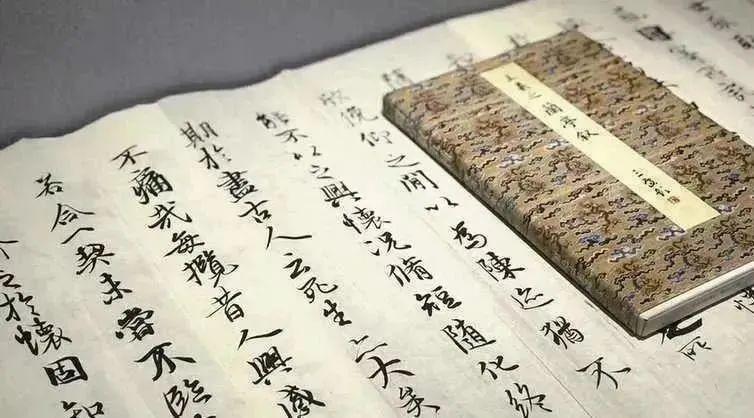 王羲之蘭亭敘
欣俛仰之閒以為陳迹猶不
能不以之興懷況脩短隨化終
期於盡古人云死生亦大矣
不痛哉每攬昔人興感
若合一契未嘗不臨
之於懷固知